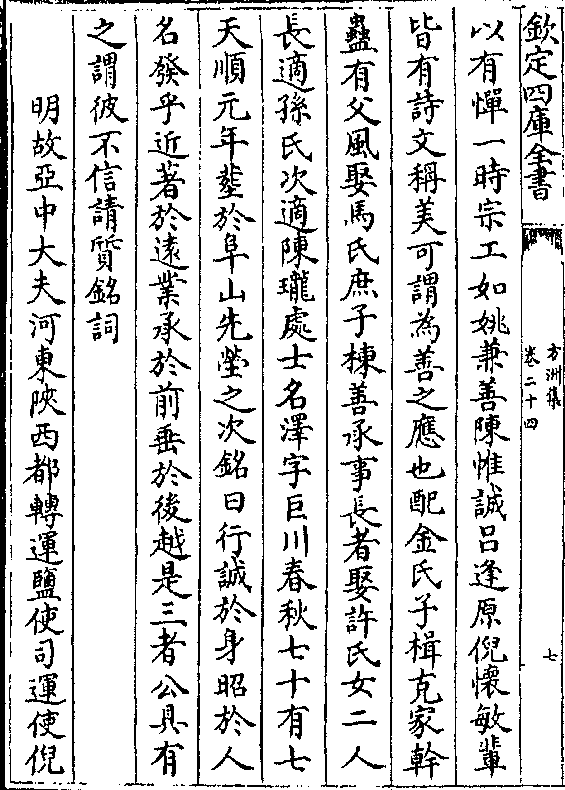 欽定四庫全書
方洲集
卷二十四
七
以有憚一時宗工如姚兼善陳惟誠吕逢原倪懐敏輩
皆有詩文稱美可謂為善之應也配金氏子楫克家幹
蠱有父風娶馬氏庶子棟善承事長者娶許氏女二人
長適孫氏次適陳瓏處士名澤字巨川春秋七十有七
天順元年塟於阜山先塋之次銘曰行誠於身昭於人
名發乎近著於逺業承於前垂於後越是三者公具有
之謂彼不信請質銘詞
明故亞中大夫河東陜西都轉運鹽使司運使倪